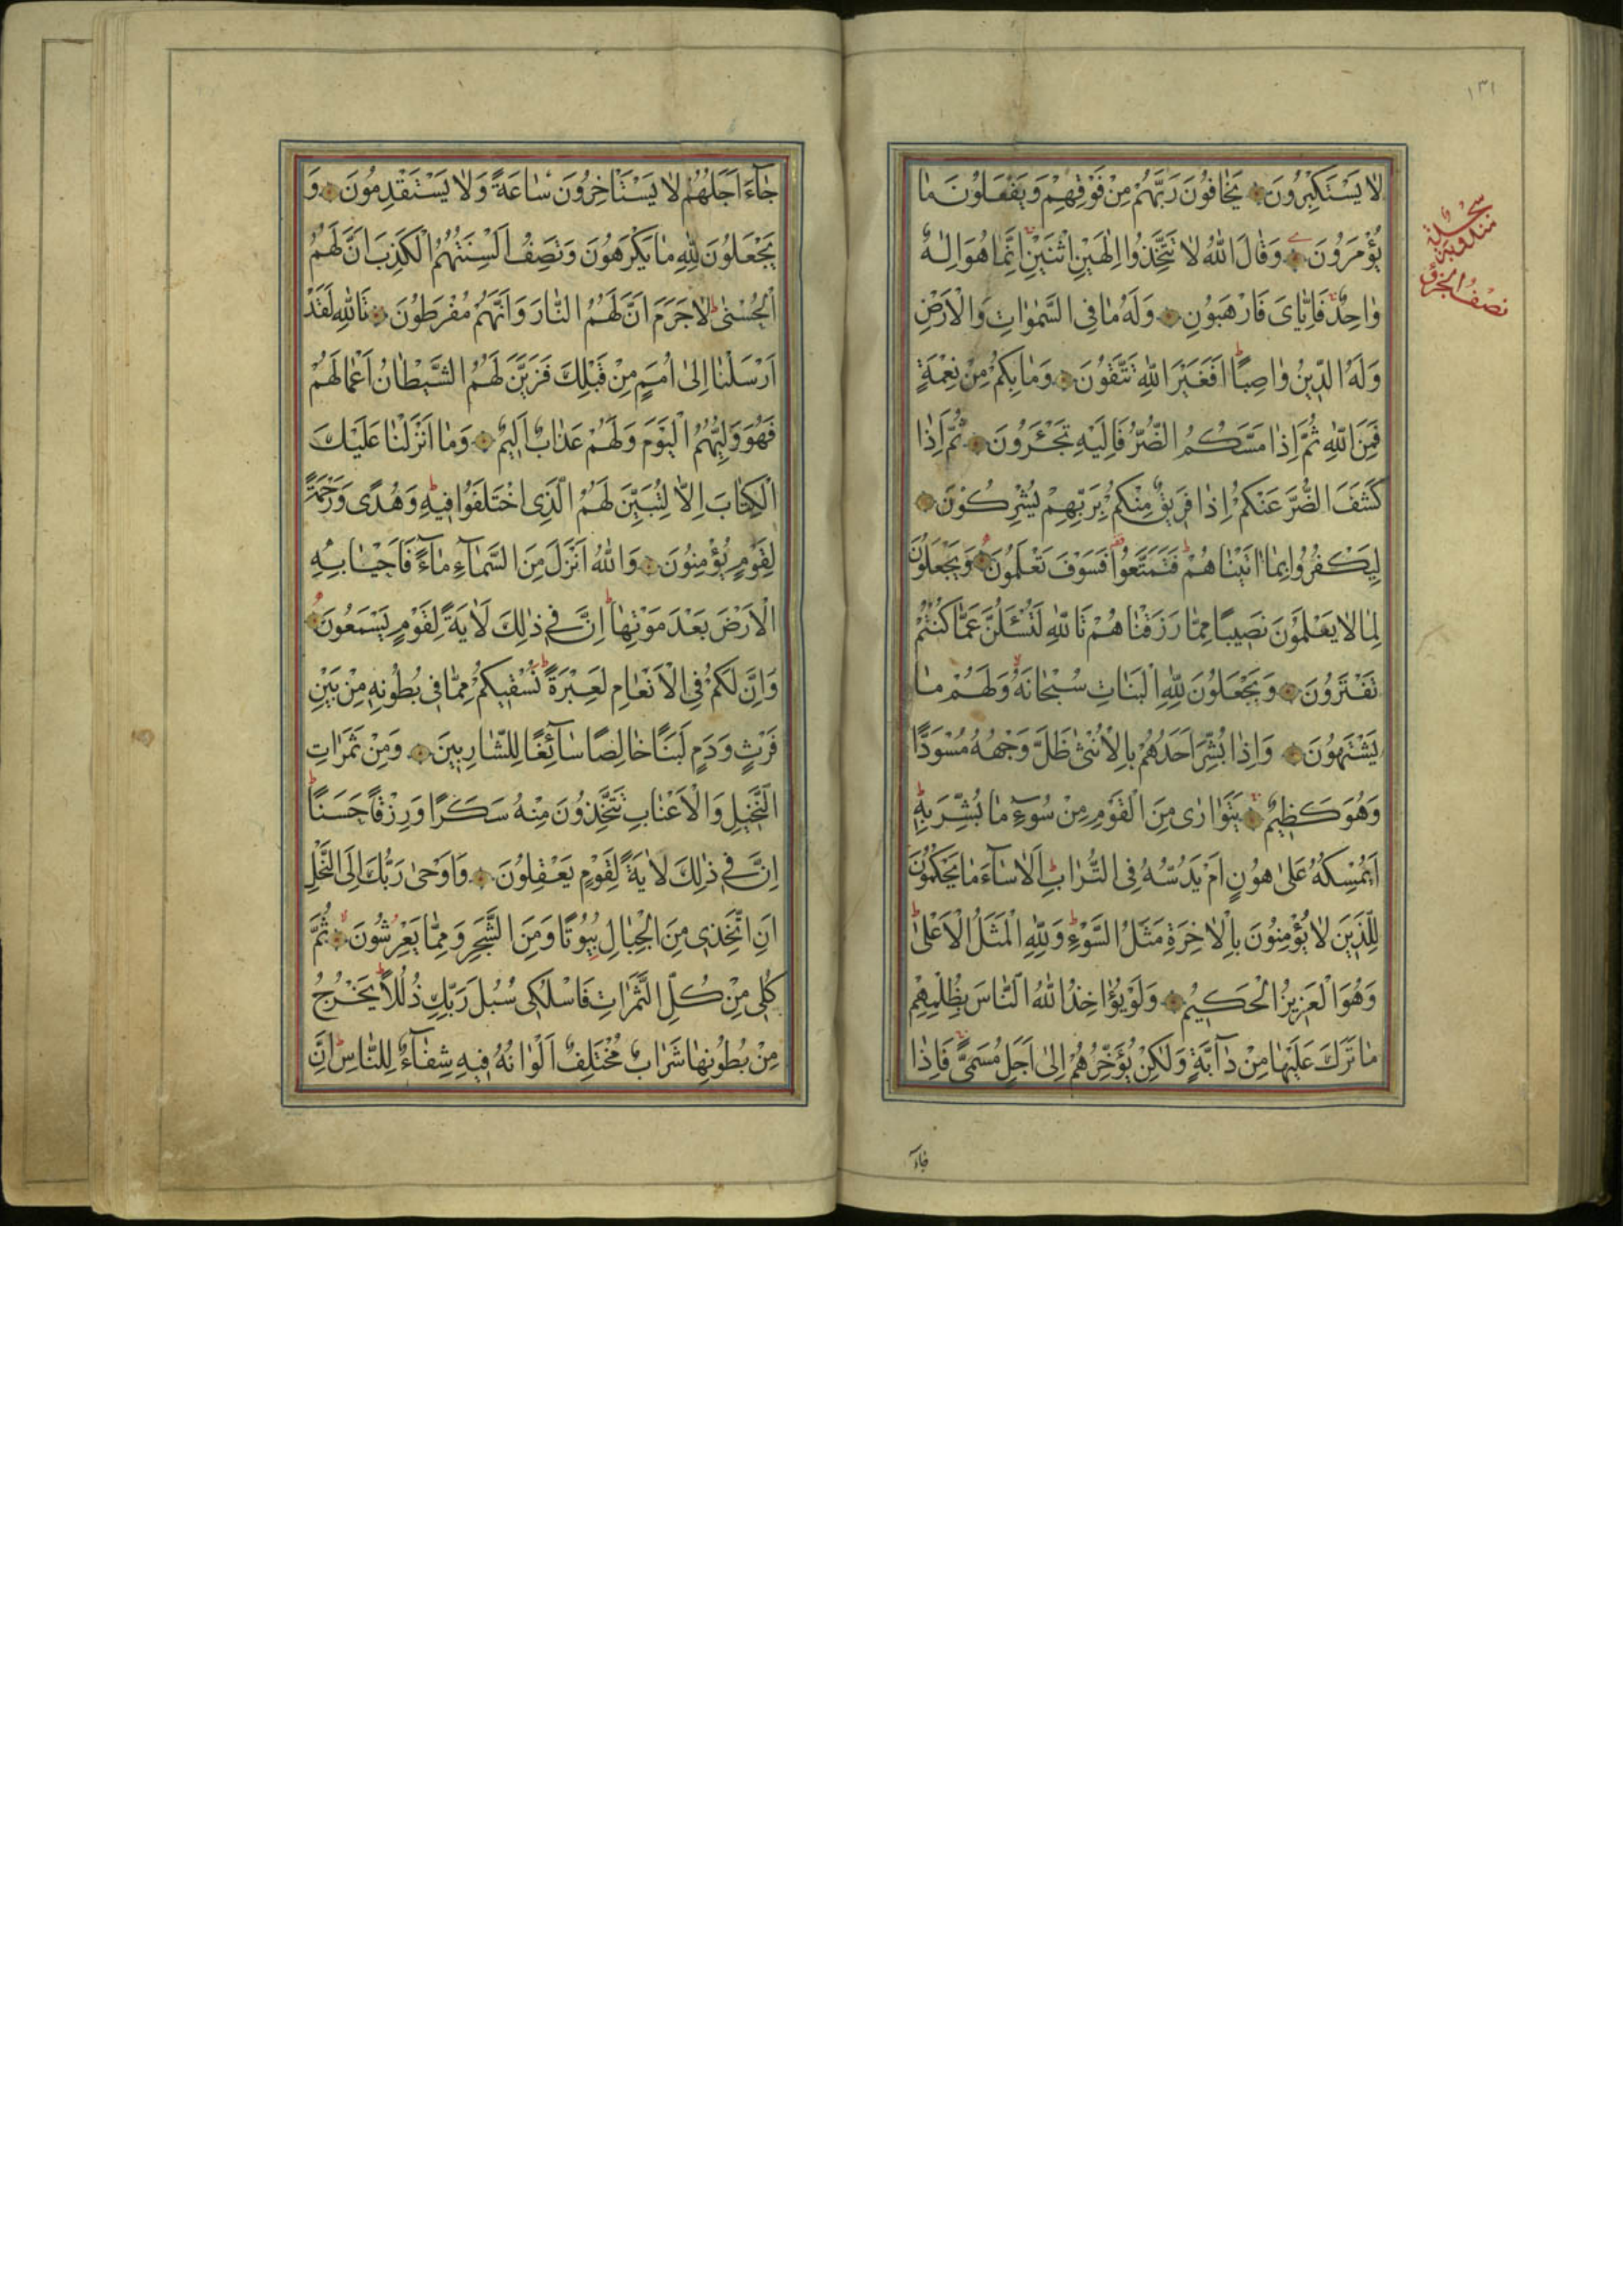 ١٣١
سجدة
مندوبة
نصف الجزؤ
لَا يَسْتَكْبِرُونَ يَخَافُونَ رَبَّهُمْ مِنْ فَوْقِهِمْ وَيَفْعَلُونَ مَا
يُؤْمَرُونَ وَقَالَ اللّٰهُ لَا تَتَّخِذُوا اِلٰهَيْنِ اثْنَيْنِ اِنَّمَا هُوَ اِلٰهٌ
وَاحِدٌ فَاِيَّايَ فَارْهَبُونِ وَلَهُ مَا فِي السَّمٰوَاتِ وَالْاَرْضِ
وَلَهُ الدِّينُ وَاصِبًا اَفَغَيْرَ اللّٰهِ تَتَّقُونَ وَمَا بِكُمْ مِنْ نِعْمَةٍ
فَمِنَ اللّٰهِ ثُمَّ اِذَا مَسَّكُمُ الضُّرُّ فَاِلَيْهِ تَجْـَٔرُونَ ثُمَّ اِذَا
كَشَفَ الضُّرَّ عَنْكُمْ اِذَا فَرِيقٌ مِنْكُمْ بِرَبِّهِمْ يُشْرِكُونَ
لِيَكْفُرُوا بِمَا اٰتَيْنَاهُمْ فَتَمَتَّعُوا فَسَوْفَ تَعْلَمُونَ وَيَجْعَلُونَ
لِمَا لَا يَعْلَمُونَ نَصِيبًا مِمَّا رَزَقْنَاهُمْ تَاللّٰهِ لَتُسْـَٔلُنَّ عَمَّا كُنْتُمْ
تَفْتَرُونَ وَيَجْعَلُونَ لِلّٰهِ الْبَنَاتِ سُبْحَانَهُ وَلَهُمْ مَا
يَشْتَهُونَ وَاِذَا بُشِّرَ اَحَدُهُمْ بِالْاُنْثٰى ظَلَّ وَجْهُهُ مُسْوَدًّا
وَهُوَ كَظِيمٌ يَتَوَارٰى مِنَ الْقَوْمِ مِنْ سُوٓءِ مَا بُشِّرَ بِهِ
اَيُمْسِكُهُ عَلٰى هُونٍ اَمْ يَدُسُّهُ فِي التُّرَابِ اَلَا سَآءَ مَا يَحْكُمُونَ
لِلَّذِينَ لَا يُؤْمِنُونَ بِالْاٰخِرَةِ مَثَلُ السَّوْءِ وَلِلّٰهِ الْمَثَلُ الْاَعْلٰى
وَهُوَ الْعَزِيزُ الْحَكِيمُ وَلَوْ يُؤَاخِذُ اللّٰهُ النَّاسَ بِظُلْمِهِمْ
مَا تَرَكَ عَلَيْهَا مِنْ دَآبَّةٍ وَلٰكِنْ يُؤَخِّرُهُمْ اِلٰى اَجَلٍ مُسَمًّى فَاِذَا
جَآءَ
جَآءَ اَجَلُهُمْ لَا يَسْتَاْخِرُونَ سَاعَةً وَلَا يَسْتَقْدِمُونَ وَ
يَجْعَلُونَ لِلّٰهِ مَا يَكْرَهُونَ وَتَصِفُ اَلْسِنَتُهُمُ الْكَذِبَ اَنَّ لَهُمُ
الْحُسْنٰى لَا جَرَمَ اَنَّ لَهُمُ النَّارَ وَاَنَّهُمْ مُفْرَطُونَ تَاللّٰهِ لَقَدْ
اَرْسَلْنَا اِلٰى اُمَمٍ مِنْ قَبْلِكَ فَزَيَّنَ لَهُمُ الشَّيْطَانُ اَعْمَالَهُمْ
فَهُوَ وَلِيُّهُمُ الْيَوْمَ وَلَهُمْ عَذَابٌ اَلِيمٌ وَمَا اَنْزَلْنَا عَلَيْكَ
الْكِتَابَ اِلَّا لِتُبَيِّنَ لَهُمُ الَّذِي اخْتَلَفُوا فِيهِ وَهُدًى وَرَحْمَةً
لِقَوْمٍ يُؤْمِنُونَ وَاللّٰهُ اَنْزَلَ مِنَ السَّمَآءِ مَآءً فَاَحْيَا بِهِ
الْاَرْضَ بَعْدَ مَوْتِهَا اِنَّ فِي ذٰلِكَ لَاٰيَةً لِقَوْمٍ يَسْمَعُونَ
وَاِنَّ لَكُمْ فِي الْاَنْعَامِ لَعِبْرَةً نُسْقِيكُمْ مِمَّا فِي بُطُونِهِ مِنْ بَيْنِ
فَرْثٍ وَدَمٍ لَبَنًا خَالِصًا سَآئِغًا لِلشَّارِبِينَ وَمِنْ ثَمَرَاتِ
النَّخِيلِ وَالْاَعْنَابِ تَتَّخِذُونَ مِنْهُ سَكَرًا وَرِزْقًا حَسَنًا
اِنَّ فِي ذٰلِكَ لَاٰيَةً لِقَوْمٍ يَعْقِلُونَ وَاَوْحٰى رَبُّكَ اِلَى النَّحْلِ
اَنِ اتَّخِذِي مِنَ الْجِبَالِ بُيُوتًا وَمِنَ الشَّجَرِ وَمِمَّا يَعْرِشُونَ ثُمَّ
كُلِي مِنْ كُلِّ الثَّمَرَاتِ فَاسْلُكِي سُبُلَ رَبِّكِ ذُلُلًا يَخْرُجُ
مِنْ بُطُونِهَا شَرَابٌ مُخْتَلِفٌ اَلْوَانُهُ فِيهِ شِفَآءٌ لِلنَّاسِ اِنَّ